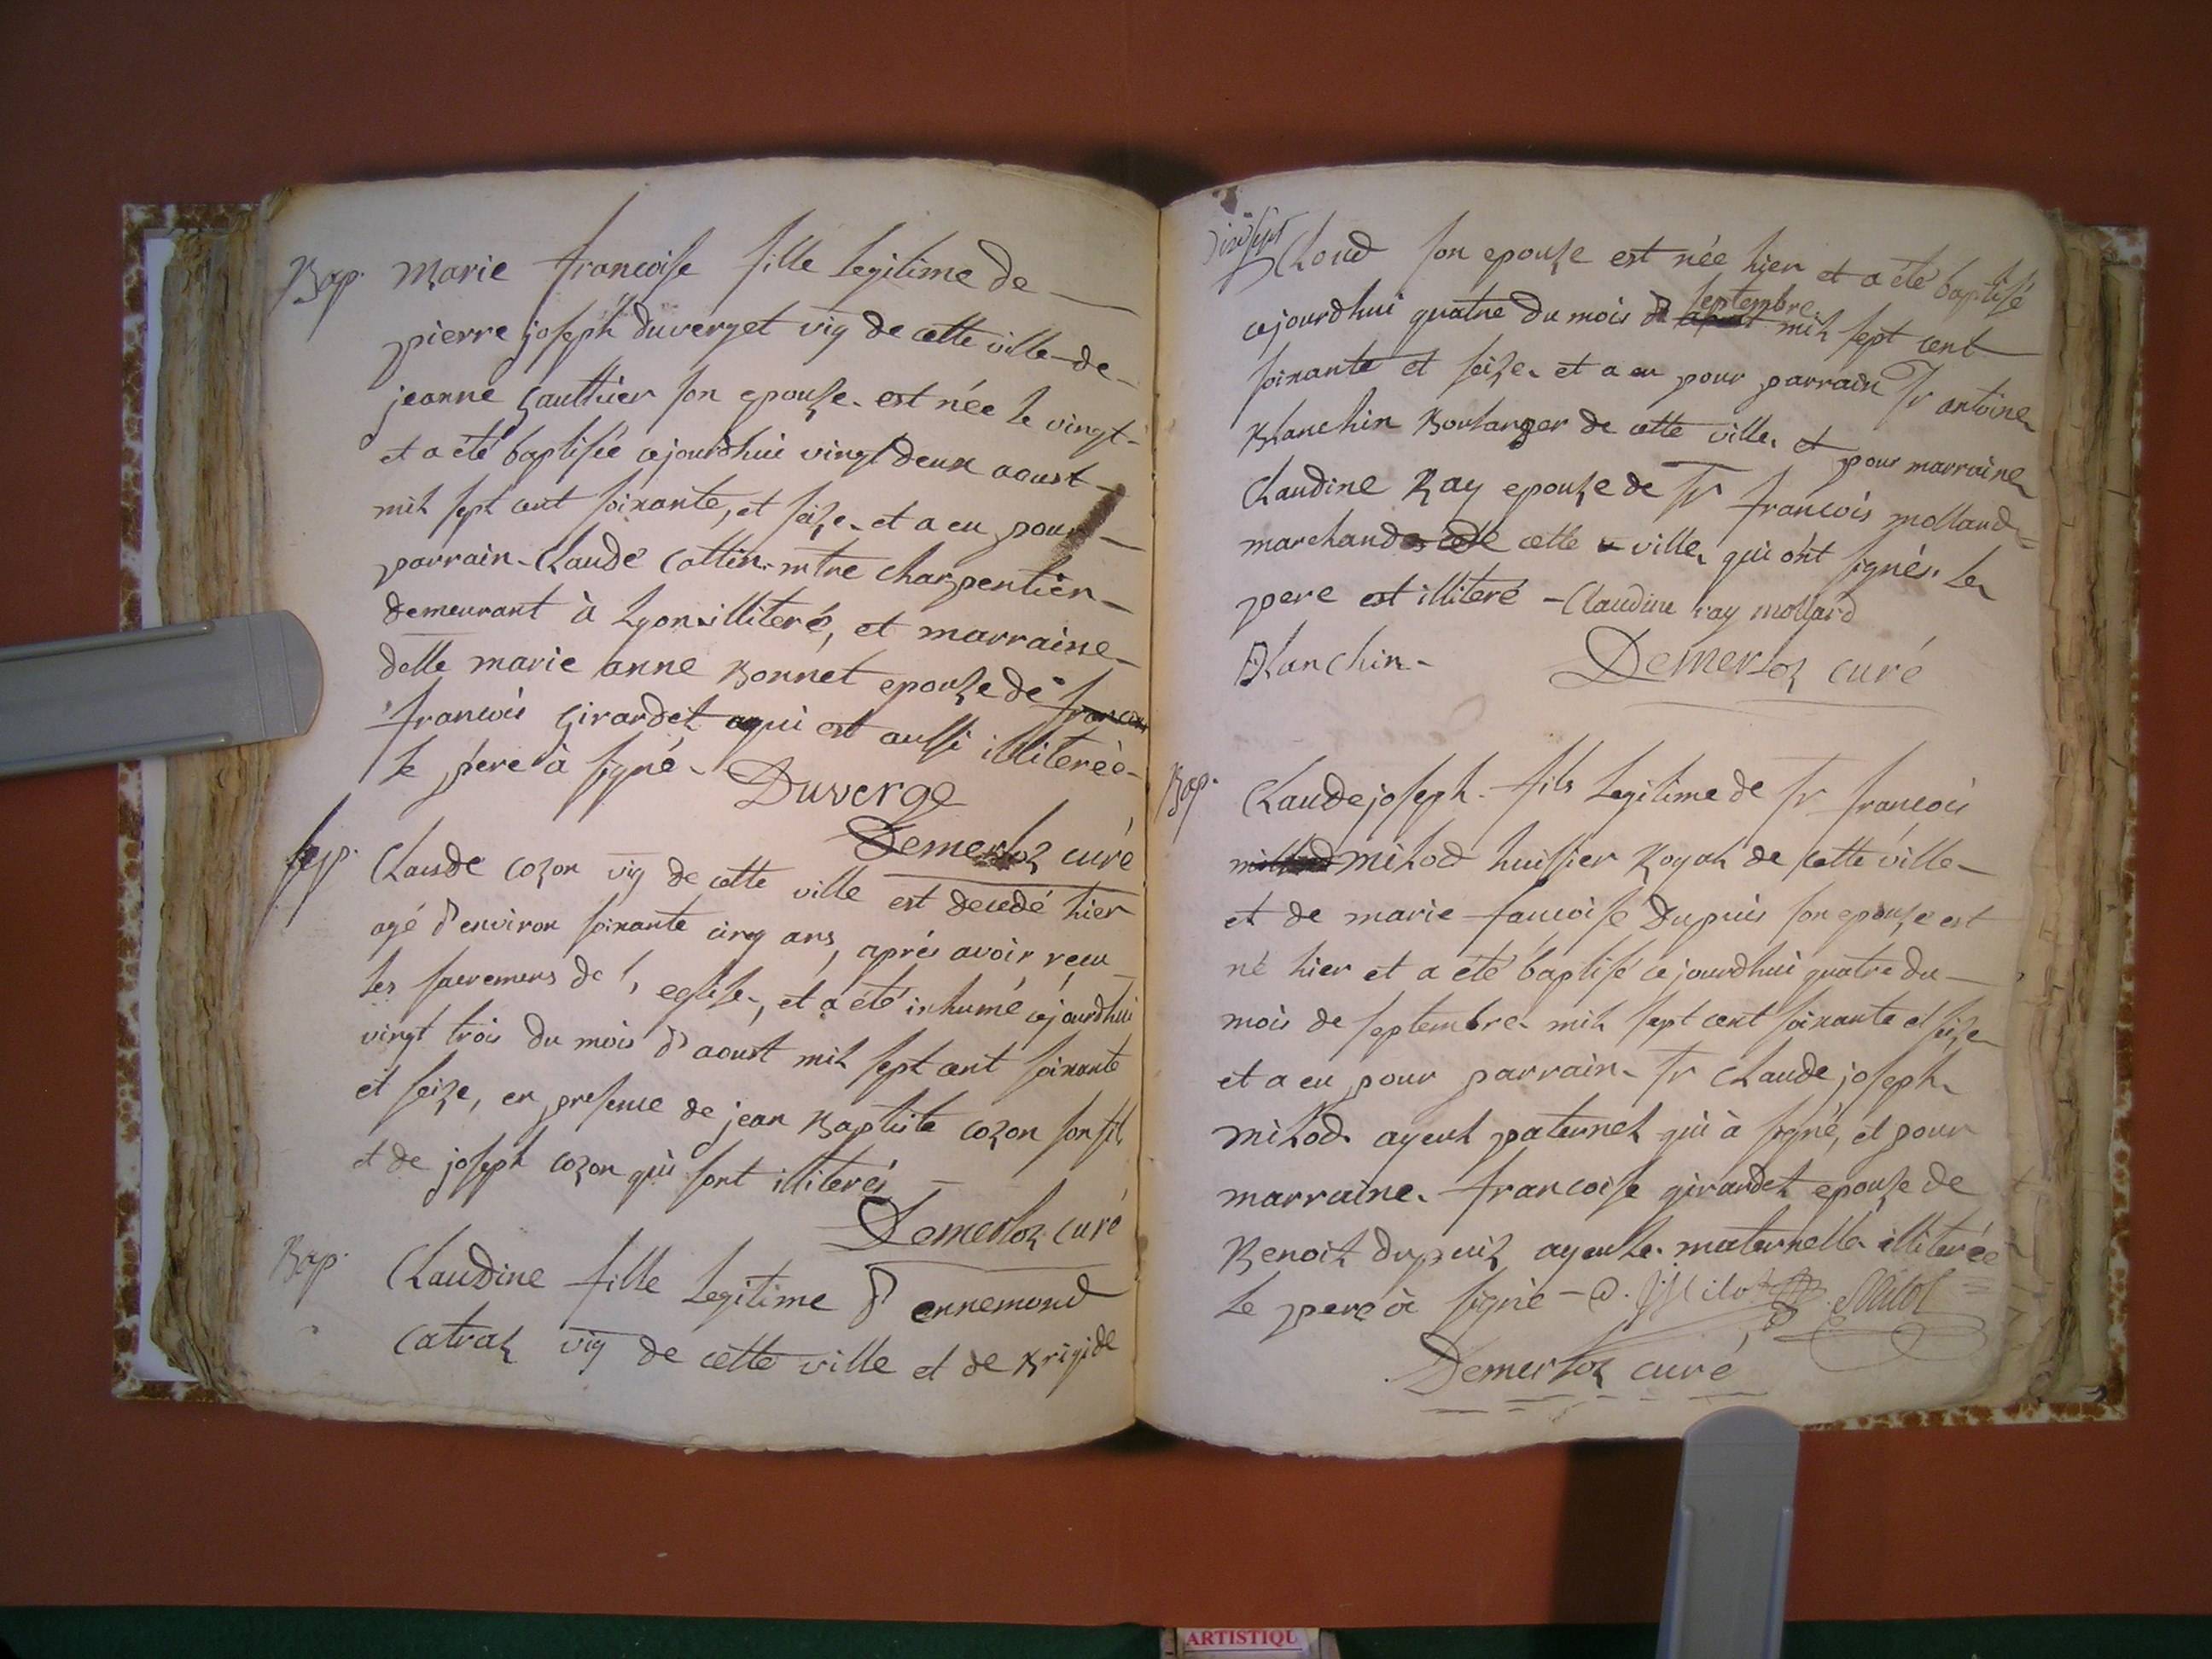 Bap. Marie francoise fille legitime de
pierre joseph duverget vig de cette ville de
jeanne gauthier son epouse est née le vingt
et a été baptisée cejourdhui vingt deux aoust
mil sept cent soixante, et seize et a eu pour
parrain Claude Cottin mtre charpentier
demeurant à Lyon illiteré, et marraine
delle marie anne Bonnet epouse de francois
francois Girardet qui est aussi illiterée
le pere à signé Duverge
Demerloz curé
sep. Claude cozon vig de cette ville est decedé hier
agé d'environ soixante cinq ans, aprés avoir recu
les sacremens de l'eglise, et a été inhumé cejourdhui
vingt trois du mois d'aoust mil sept cent soixante
et seize, en presence de jean Baptiste cozon son fils
et de joseph cozon qui sont illiterés
Demerloz curé
Bap. Claudine fille legitime d'ennemond
Catval vig de cette ville et de Brigide
dixsept
Cloud son epouse est née hier et a été baptisé
cejourdhui quatre du mois de septembre mil sept cent
soixante et seize et a eu pour parrain sr antoine
Blanchin Boulanger de cette ville et pour marraine
Claudine Ray epouse de sr francois molland
marchand cette ville qui ont signés le
pere est illiteré - Claudine ray mollard
Blanchin Demerloz curé
Bap. Claude joseph fils legitime de sr francois
milod huissier Royal de cette ville
et de marie fancoise Dupuis son epouse est
né hier et a été baptisé cejourdhui quatre du
mois de septembre mil sept cent soixante et seize
et a eu pour parrain sr Claude joseph
milod ayeul paternel qui à signé, et pour
marraine francoise girardet epouse de
Benoit dupuis ayeule maternelle illiterée
le pere à signé Milod
Demerloz curé
ARTISTIQU